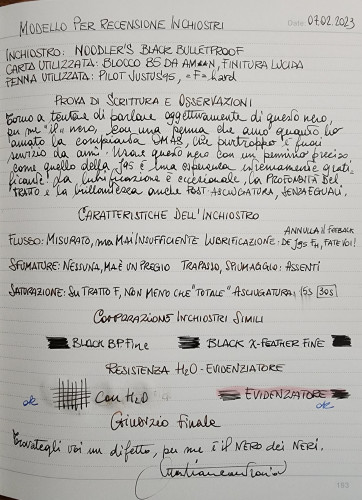 Date 07.02.2023
MODELLO PER RECENSIONE INCHIOSTRI
INCHIOSTRO: NOODLER'S BLACK BULLETPROOF
CARTA UTILIZZATA: BLOCCO B5 DA AMAZON, FINITURA LUCIDA
PENNA UTILIZZATA: PILOT JUSTUS95, "F" hard
PROVA DI SCRITTURA E OSSERVAZIONI
Torno a tentare di parlare oggettivamente di questo nero,
per me "il" nero, con una penna che amo quanto ho
amato la compianta OMAS, che purtroppo è fuori
servizio da anni. Usare questo nero con un pennino preciso
come quello della J95 è una esperienza estremamente grati-
ficante. La lubrificazione è eccezionale, la PROFONDITÀ DEL
TRATTO e la brillantezza anche POST-ASCIUGATURA, SENZA EGUALI.
CARATTERISTICHE DELL'INCHIOSTRO
ANNULLA IL FEEDBACK
FLUSSO: MISURATO, MA MAI INSUFFICIENTE LUBRIFICAZIONE: DE J95 FH, FATE VOI!
SFUMATURE: NESSUNA, MA È UN PREGIO TRAPASSO, SPIUMAGGIO: ASSENTI
SATURAZIONE: SU TRATTO F, NON MENO CHE "TOTALE" ASCIUGATURA: 15s 30s
COMPARAZIONE INCHIOSTRI SIMILI
BLACK BP Fine BLACK X-FEATHER FINE
RESISTENZA H2O - EVIDENZIATORE
ok CON H2O EVIDENZIATORE ok
Giudizio Finale
Trovategli voi un difetto, per me è il NERO dei NERI.
163